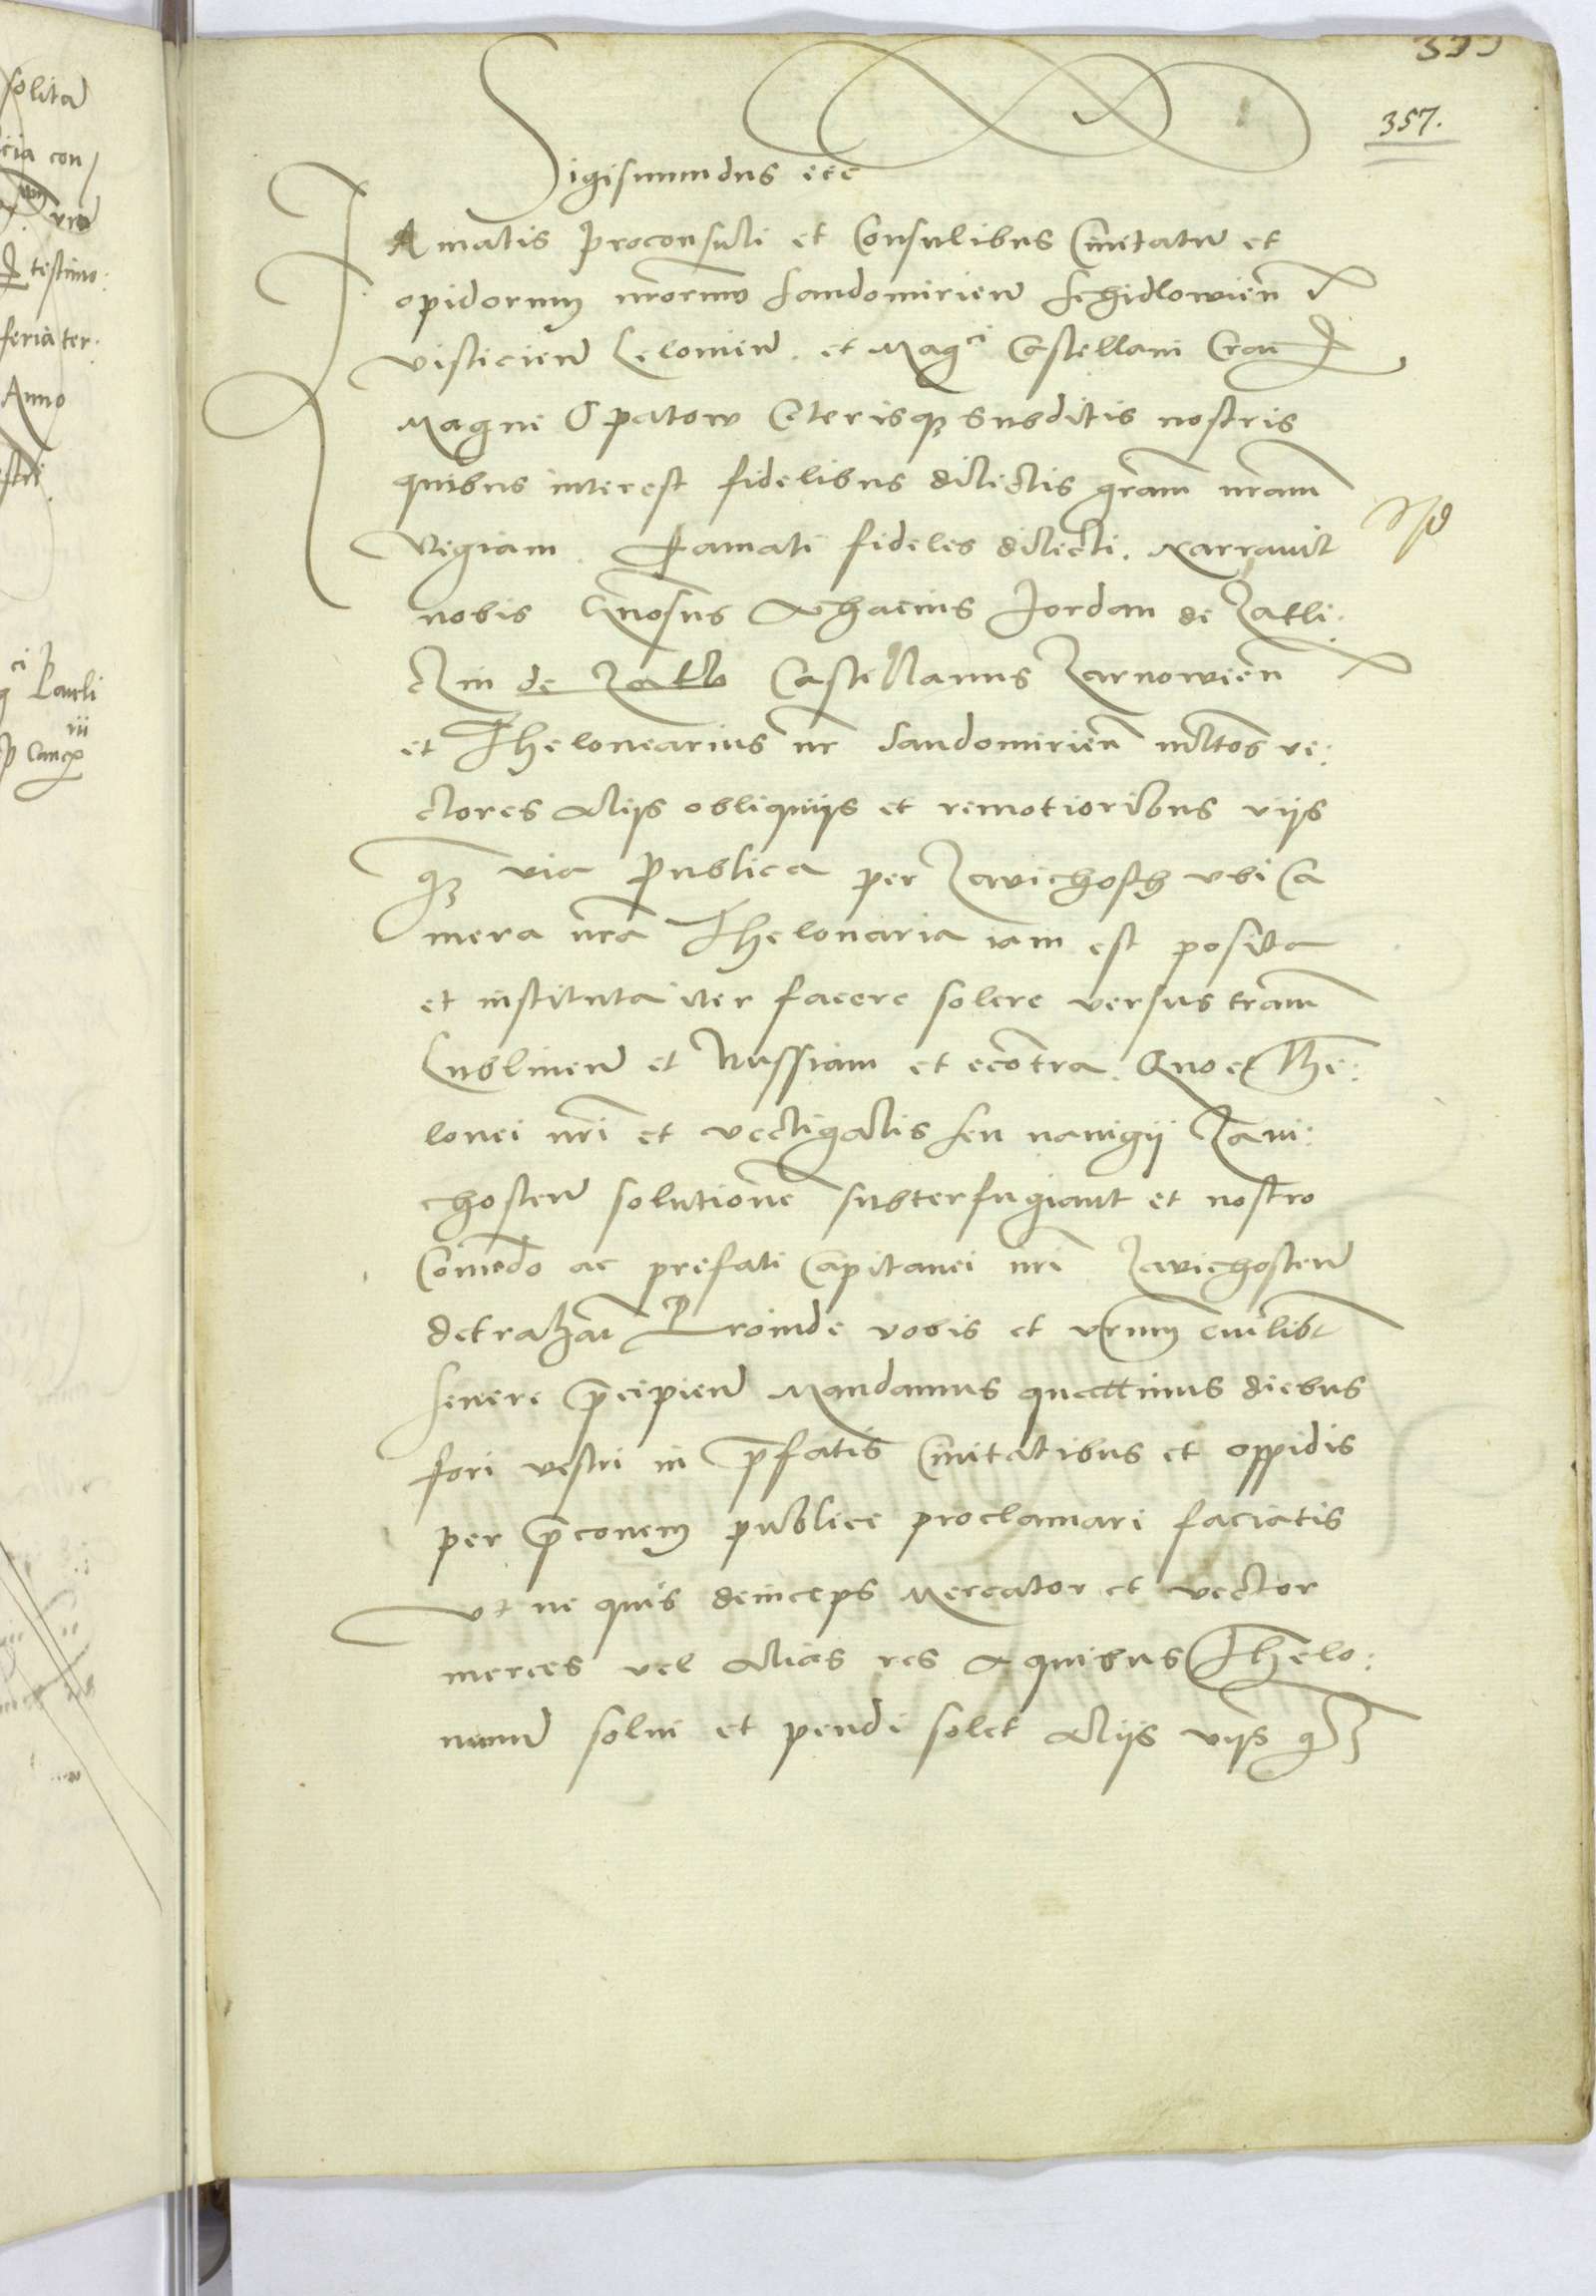 357.
Sigismundus etc
Famatis proconsuli et Consulibus Civitatũ et
opidorum nrorum Sandomirien̄ Schidlowien̄
visliciẽn Lelovien̄ et Magci Castellani Crac
Magni Opatow Ceterisq subditis nostris
quibus interest fidelibus dilectis grãm nrãm
Regiam. Famati fideles dilecti. Narravit
nobis Gnosus Achacius Jordan de Zakli:
czin de Zaklo Castellanus Zarnowien̄
et Thelonearius nr Sandomirien̄ mltos ve:
ctores alijs obliquijs et remotioribus vijs
q via publica per Zavichosth ubi Ca
mera nrã Thelonaria iam est posita
et instituta iter facere solere versus trãm
Lublinen̄ et Russiam et ecõtra. Quo et The:
lonei nri et vectigalis seu navigij Zavi:
chosten̄ solutionẽ subterfugiant et nostro
Comodo ac prefati Capitanei nri Zavichosten̄
detrahãt Proinde vobis et vrum cuilibt
severe p̄cipien̄ Mandamus quattinus diebus
fori vestri in p̄fatis Civitatibus et oppidis
per p̄conem publice proclamari faciatis
Ut ne quis deinceps Mercator et vector
merces vel alias res a quibus Thelo:
neum solui et pendi solet alijs vijs q

solitã
con
testimo:
feria ter:
Anno
Pauli